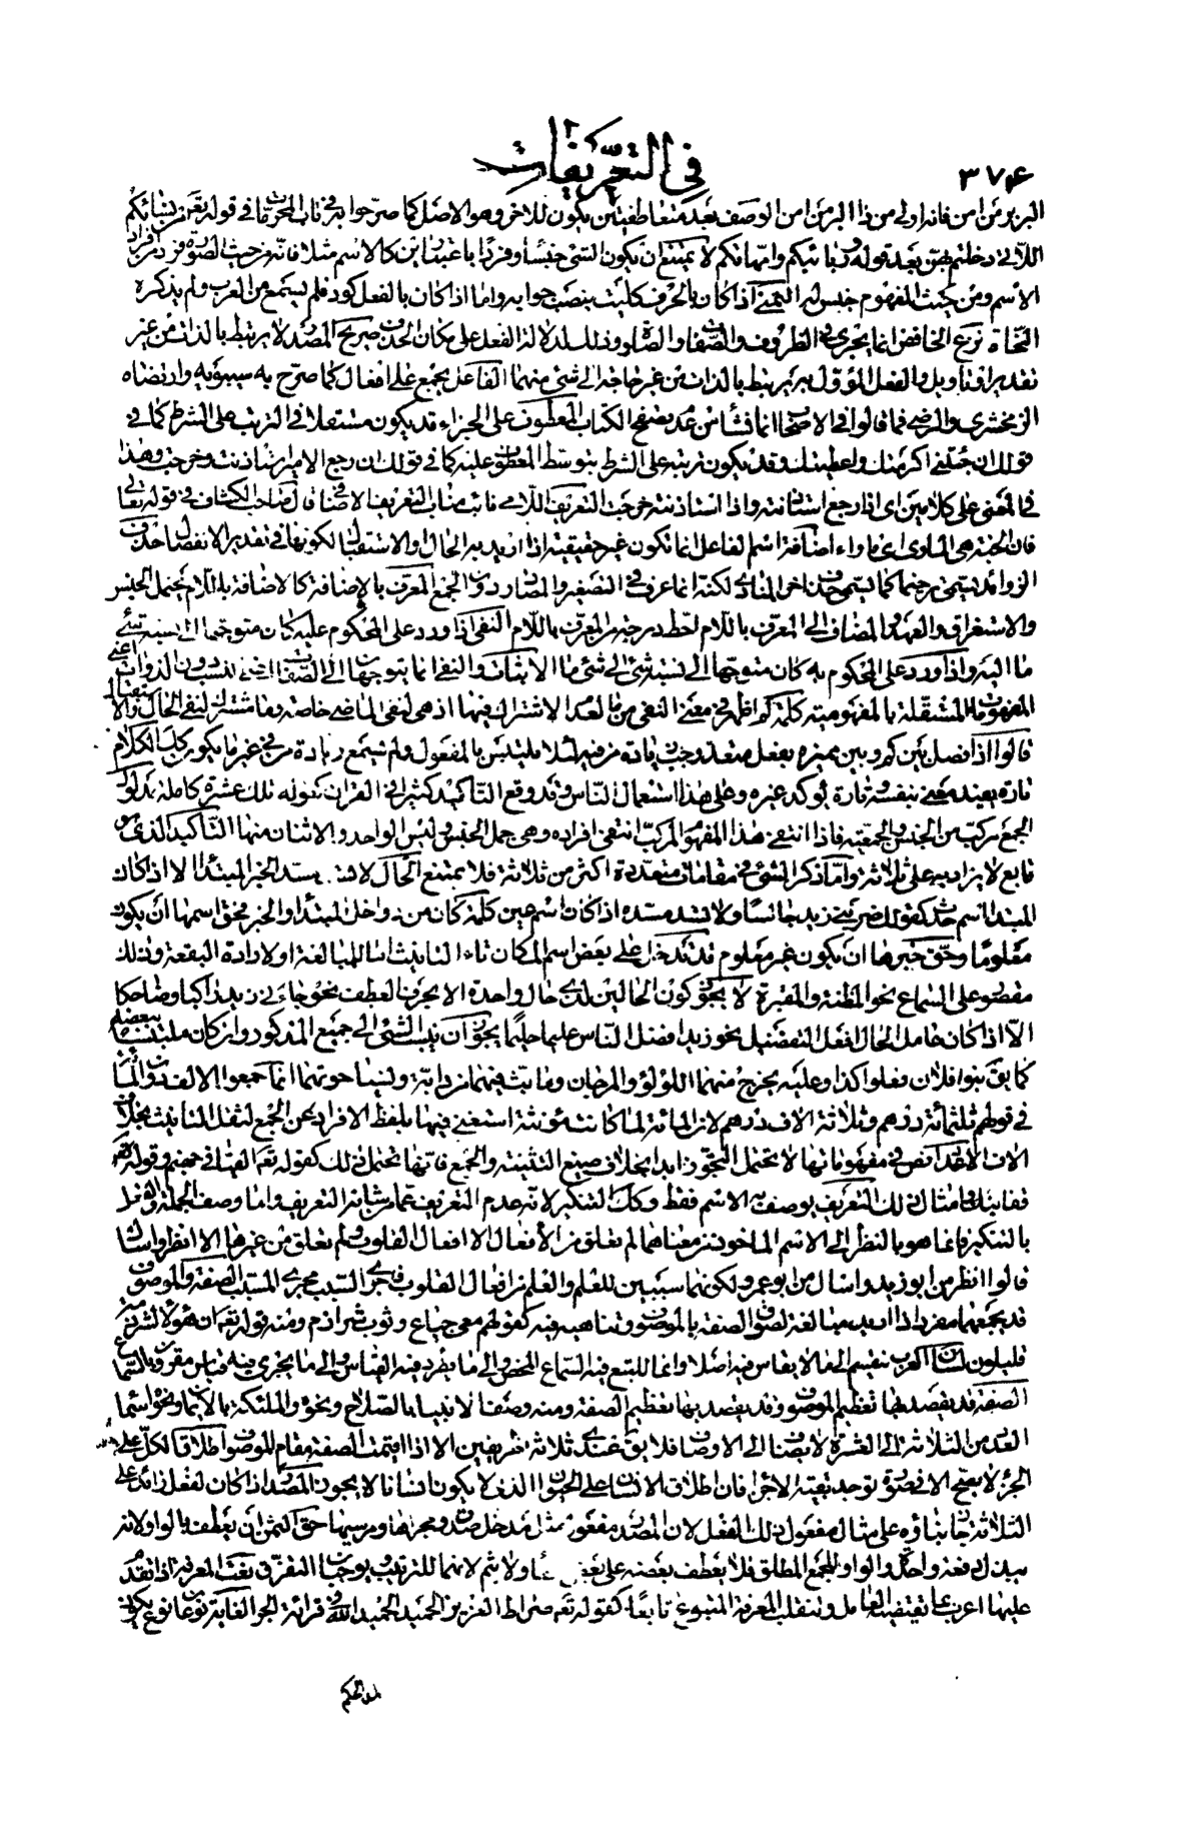 ٣٧٤ في التعريفات
البر بر من امن فانه اولى من ذا البر من امن الوصف بعد متعاطفين يكون للاخر وهو الاصل كما صرحوا به في باب المحرمات في قوله تعم من نسائكم
اللاتي دخلتم بهن بعد قوله وربائبكم وامهاتكم لا يمتنع ان يكون الشئ جنسا وفردا باعتبارين كالاسم مثلا فانه من حيث الصورة فرد من افراد
الاسم ومن حيث المفهوم جنس له التمني اذا كان بالحرف كليت ينصب جوابه واما اذا كان بالفعل كود فلم يسمع من العرب ولم يذكره
النحاة نزع الخافض انما يجري في الظروف والصفات والصلات وذلك لدلالة الفعل على مكان الحذف صريح المصدر لا يرتبط بالذات من غير
تقدير او تاويل والفعل المؤول به يرتبط بالذات من غير حاجة الى شئ منهما الفاعل يجمع على افعال كما صرح به سيبويه وارتضاه
الزمخشري والرضي فما قالوا في الاصحاب انما نشأ من عدم تصفح الكتاب المعطوف على الجزاء قد يكون مستقلا في الترتب على الشرط كما في
قولك ان جئتني اكرمتك واعطيتك وقد يكون ترتبه على الشرط بتوسط المعطوف عليه كما في قولك ان رجع الامير استاذنت وخرجت وهذا
في المعنى على كلامين اي اذا رجع استاذنته واذا استاذنته خرجت التعريف اللامي نائب مناب التعريف الاضافي قال صاحب الكشاف في قوله تعالى
فان الجنة هي الماوى اي ماواه اضافة اسم الفاعل انما تكون غير حقيقية اذا اريد به الحال والاستقبال لكونها في تقدير الانفصال حذف
الزوائد يسمى ترخيما كما يسمى حذف اخر المنادى لكنه انما عرف في التصغير والمصادر دون الجمع المعرف بالاضافة كالاضافة باللام يحتمل الجنس
والاستغراق والعهد والمضاف الى المعرف باللام احط درجة من المعرف باللام النفي اذا ورد على المحكوم عليه كان متوجها الى نسبة شئ
ما اليه واذا ورد على المحكوم به كان متوجها الى نسبة شئ الى شئ ما الاثبات والنفي انما يتوجهان الى الصفات اعني النسب دون الذوات اعني
المفهومات المستقلة بالمفهومية كلمة لم اظهر في معنى النفي من ما لعدم الاشتراك فيها اذ هي لنفي الماضي خاصة وما مشترك لنفي الحال والاستقبال
قالوا اذا فصل بين كم وبين مميزه بفعل متعد وجب زيادة من فيه لئلا يلتبس بالمفعول ولم يسمع زيادة من في غير ما يكون كذلك الكلام
تارة يعيد معنى بنفسه وتارة يؤكد غيره وعلى هذا استعمال الناس وقد وقع التاكيد كثيرا في القران كقوله تلك عشرة كاملة مدلول
الجمع مركب من الجنس والجمعية فاذا انتفى هذا المفهوم المركب انتفى افراده وهي جمل الجنس وليس الواحد والاثنان منها التاكيد الذي هو
تابع لا يزاد به على ثلاثة واما ذكر الشئ في مقامات متعددة اكثر من ثلاثة فلا يمتنع الحال لا يسد مسد الخبر المبتدا الا اذا كان
المبتدا اسم حدث كقولك ضربي زيدا جالسا ولا تسد مسده اذا كان اسم عين كلمة كان من دواخل المبتدا والخبر فحق اسمها ان يكون
معلوما وحق خبرها ان يكون غير معلوم قد تدخل على بعض اسم المكان تاء التانيث اما للمبالغة او لارادة البقعة وذلك
مقصور على السماع نحو المظنة والمقبرة لا يجوز كون الحالين لذي حال واحدة الا بحرف العطف نحو جاءني زيد راكبا وضاحكا
الا اذا كان عامل الحال افعل التفضيل نحو زيد افضل الناس عليما حليما يجوز ان ينسب الشئ الى جميع المذكور وان كان ملتبسا ببعضه
كما يق بنوا فلان فعلوا كذا وعليه يخرج منهما اللؤلؤ والمرجان وما بث فيهما من دابة ونسيا حوتهما انما جمعوا الالف دون المائة
في قولهم ثلثمائة درهم وثلاثة الاف درهم لان المائة لما كانت مؤنثة استغنى فيها بلفظ الافراد عن الجمع لثقل التانيث بخلاف
الالف الاعداد نص في مفهوماتها لا تحتمل التجوز ابدا بخلاف صيغ التثنية والجمع فانها تحتمل ذلك كقوله تعم القيا في جهنم وقوله تعم
قفا نبك وامثال ذلك التعريف يوصف به الاسم فقط وكذلك التنكير لانه عدم التعريف عما من شانه التعريف واما وصف الجملة والفعل
بالتنكير فانما هو بالنظر الى الاسم الماخوذ من معناهما لم تعلق من الافعال الا افعال القلوب ولم تعلق من غيرها الا انظر واسال
قالوا انظر من ابو زيد واسال من ابو عمرو لكونهما سببين للعلم والعلم من افعال القلوب فاجرى السبب مجرى المسبب الصفة والموصوف
قد يجمعهما مفرد اذا اريد مبالغة لصوق الصفة بالموصوف وتناهيه فيه كقولهم معى جياع وثوب شراذم ومنه قوله تعم ان هؤلاء لشرذمة
قليلون لسان العرب تنقسم الى ما لا يقاس فيه اصلا وانما للتتبع فيه السماع المحض والى ما يطرد فيه القياس والى ما يجري فيه قياس مقرون بالسماع
الصفة قد يقصد بها تعظيم الموصوف وقد يقصد بها تعظيم الصفة ومنه وصف الانبياء بالصلاح ونحوه والملئكة بالايمان ونحو اسماء
العدد من الثلاثة الى العشرة لا يضاف الى الاوصاف فلا يق عندي ثلاثة ظريفين الا اذا اقيمت الصفة مقام الموصوف اطلاق الكل على
الجزء لا يصح الا في صورة توجد بقية الاجزاء فان اطلاق الانسان على الحيوان الذي لا يكون انسانا لا يجوز المصدر اذا كان لفعل زائد على
الثلاثة جاز بناؤه على مثال مفعول ذلك الفعل لان المصدر مفعول مثل مدخل صدق ومجراها ومرسيها حق الثمن ان يعطف بالواو لانه
يبذل دفعة واحدة والواو للجمع المطلق فلا يعطف بعضه على بعض بالفاء ولا بثم لانهما للترتيب ويوجب التفرق نعت المعرفة اذا تقدم
عليها اعرب بما تقتضيه العامل وتنقلب المعرفة المتبوع تابعا كقوله تعم صراط العزيز الحميد الحميد الله في قرائة الجر الغاية نوعان نوع يكون
لمد الحكم